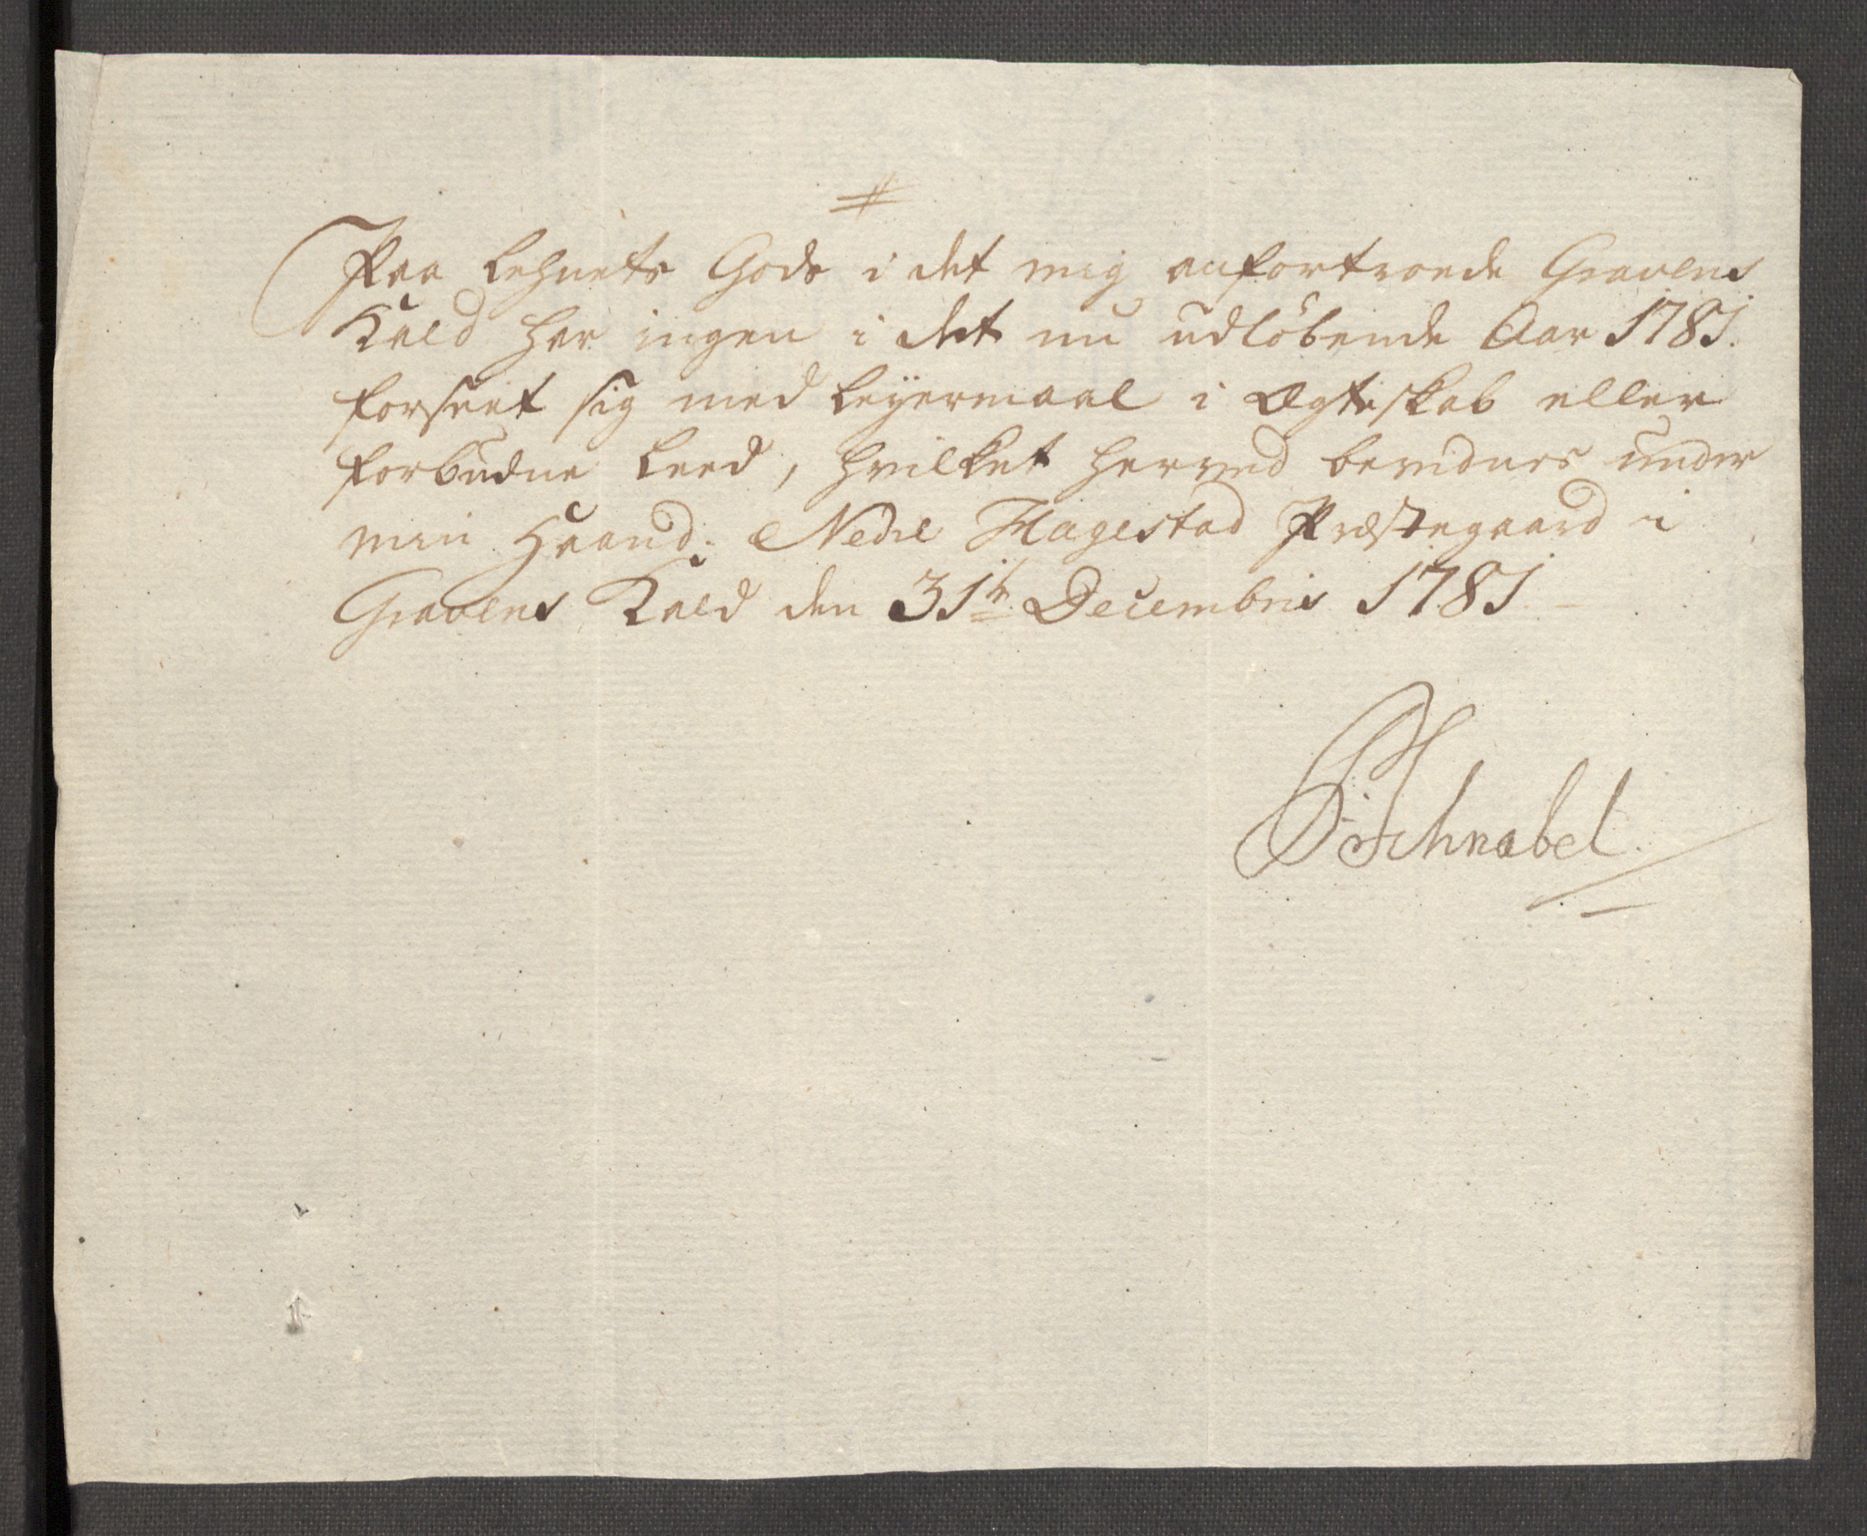 Paa Lehnets Gods i det mig anfortroede Gravens
Kald har ingen i det nu udløbende Aar 1781.
forseet sig med Leyermaal i Ægteskab eller
forbudne Leed, hvilket herved bevidnes under
min Haand. Nedre Hagestad Præstegaard i
Gravens Kald den 31te Decembris 1781
Schnabel